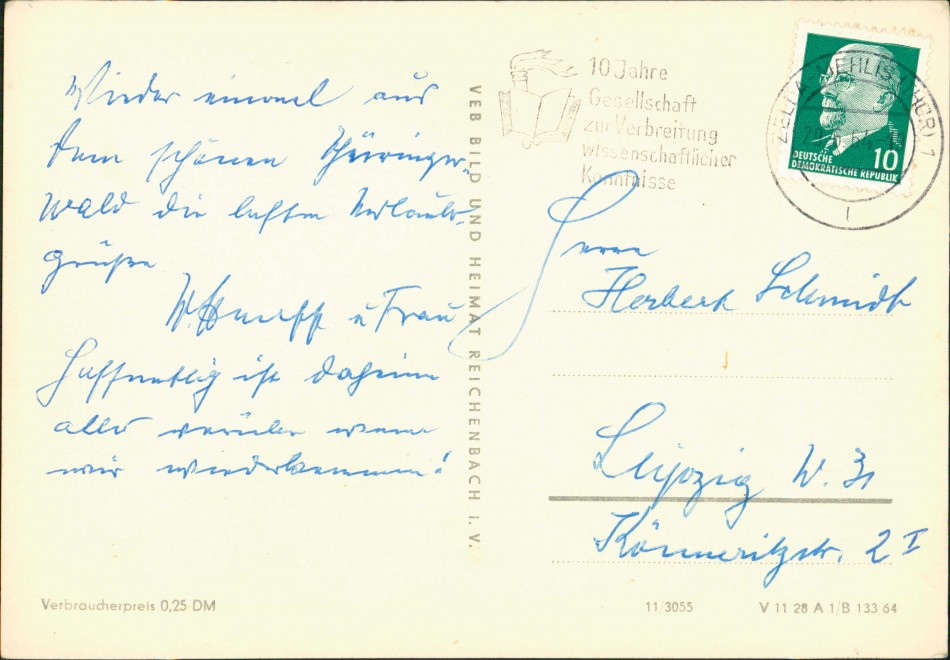 Wieder einmal aus
dem schönen Thüringer-
wald die besten Urlaubs-
grüße
u Frau
Hoffentlich ist daheim
alles wenn
wir wiederkommen!
VEB BILD UND HEIMAT REICHENBACH i. V.
10 Jahre
Gesellschaft
zur Verbreitung
wissenschaftlicher
Kenntnisse
ZELLA-MEHLIS (THÜR) 1
DEUTSCHE
DEMOKRATISCHE REPUBLIK
10
Herrn
Herbert Schmidt
Leipzig W. 31
Könneritzstr. 2 I
Verbraucherpreis 0,25 DM
11/3055
V 11 28 A 1/B 133 64